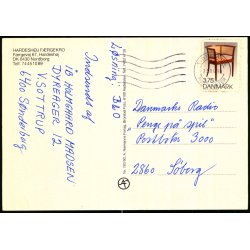 HARDESHØJ FÆRGEKRO
Færgevej 67, Hardeshøj
DK 6430 Nordborg
Tlf. 74 45 10 89
Løsning B60
Indsendt af
IB HOLMGAARD MADSEN
DYREAGER 12
V. SOTTRUP
6400 Sønderborg
3.75
DANMARK
Danmarks Radio
"Penge på spil"
Postboks 3000
2860 Søborg